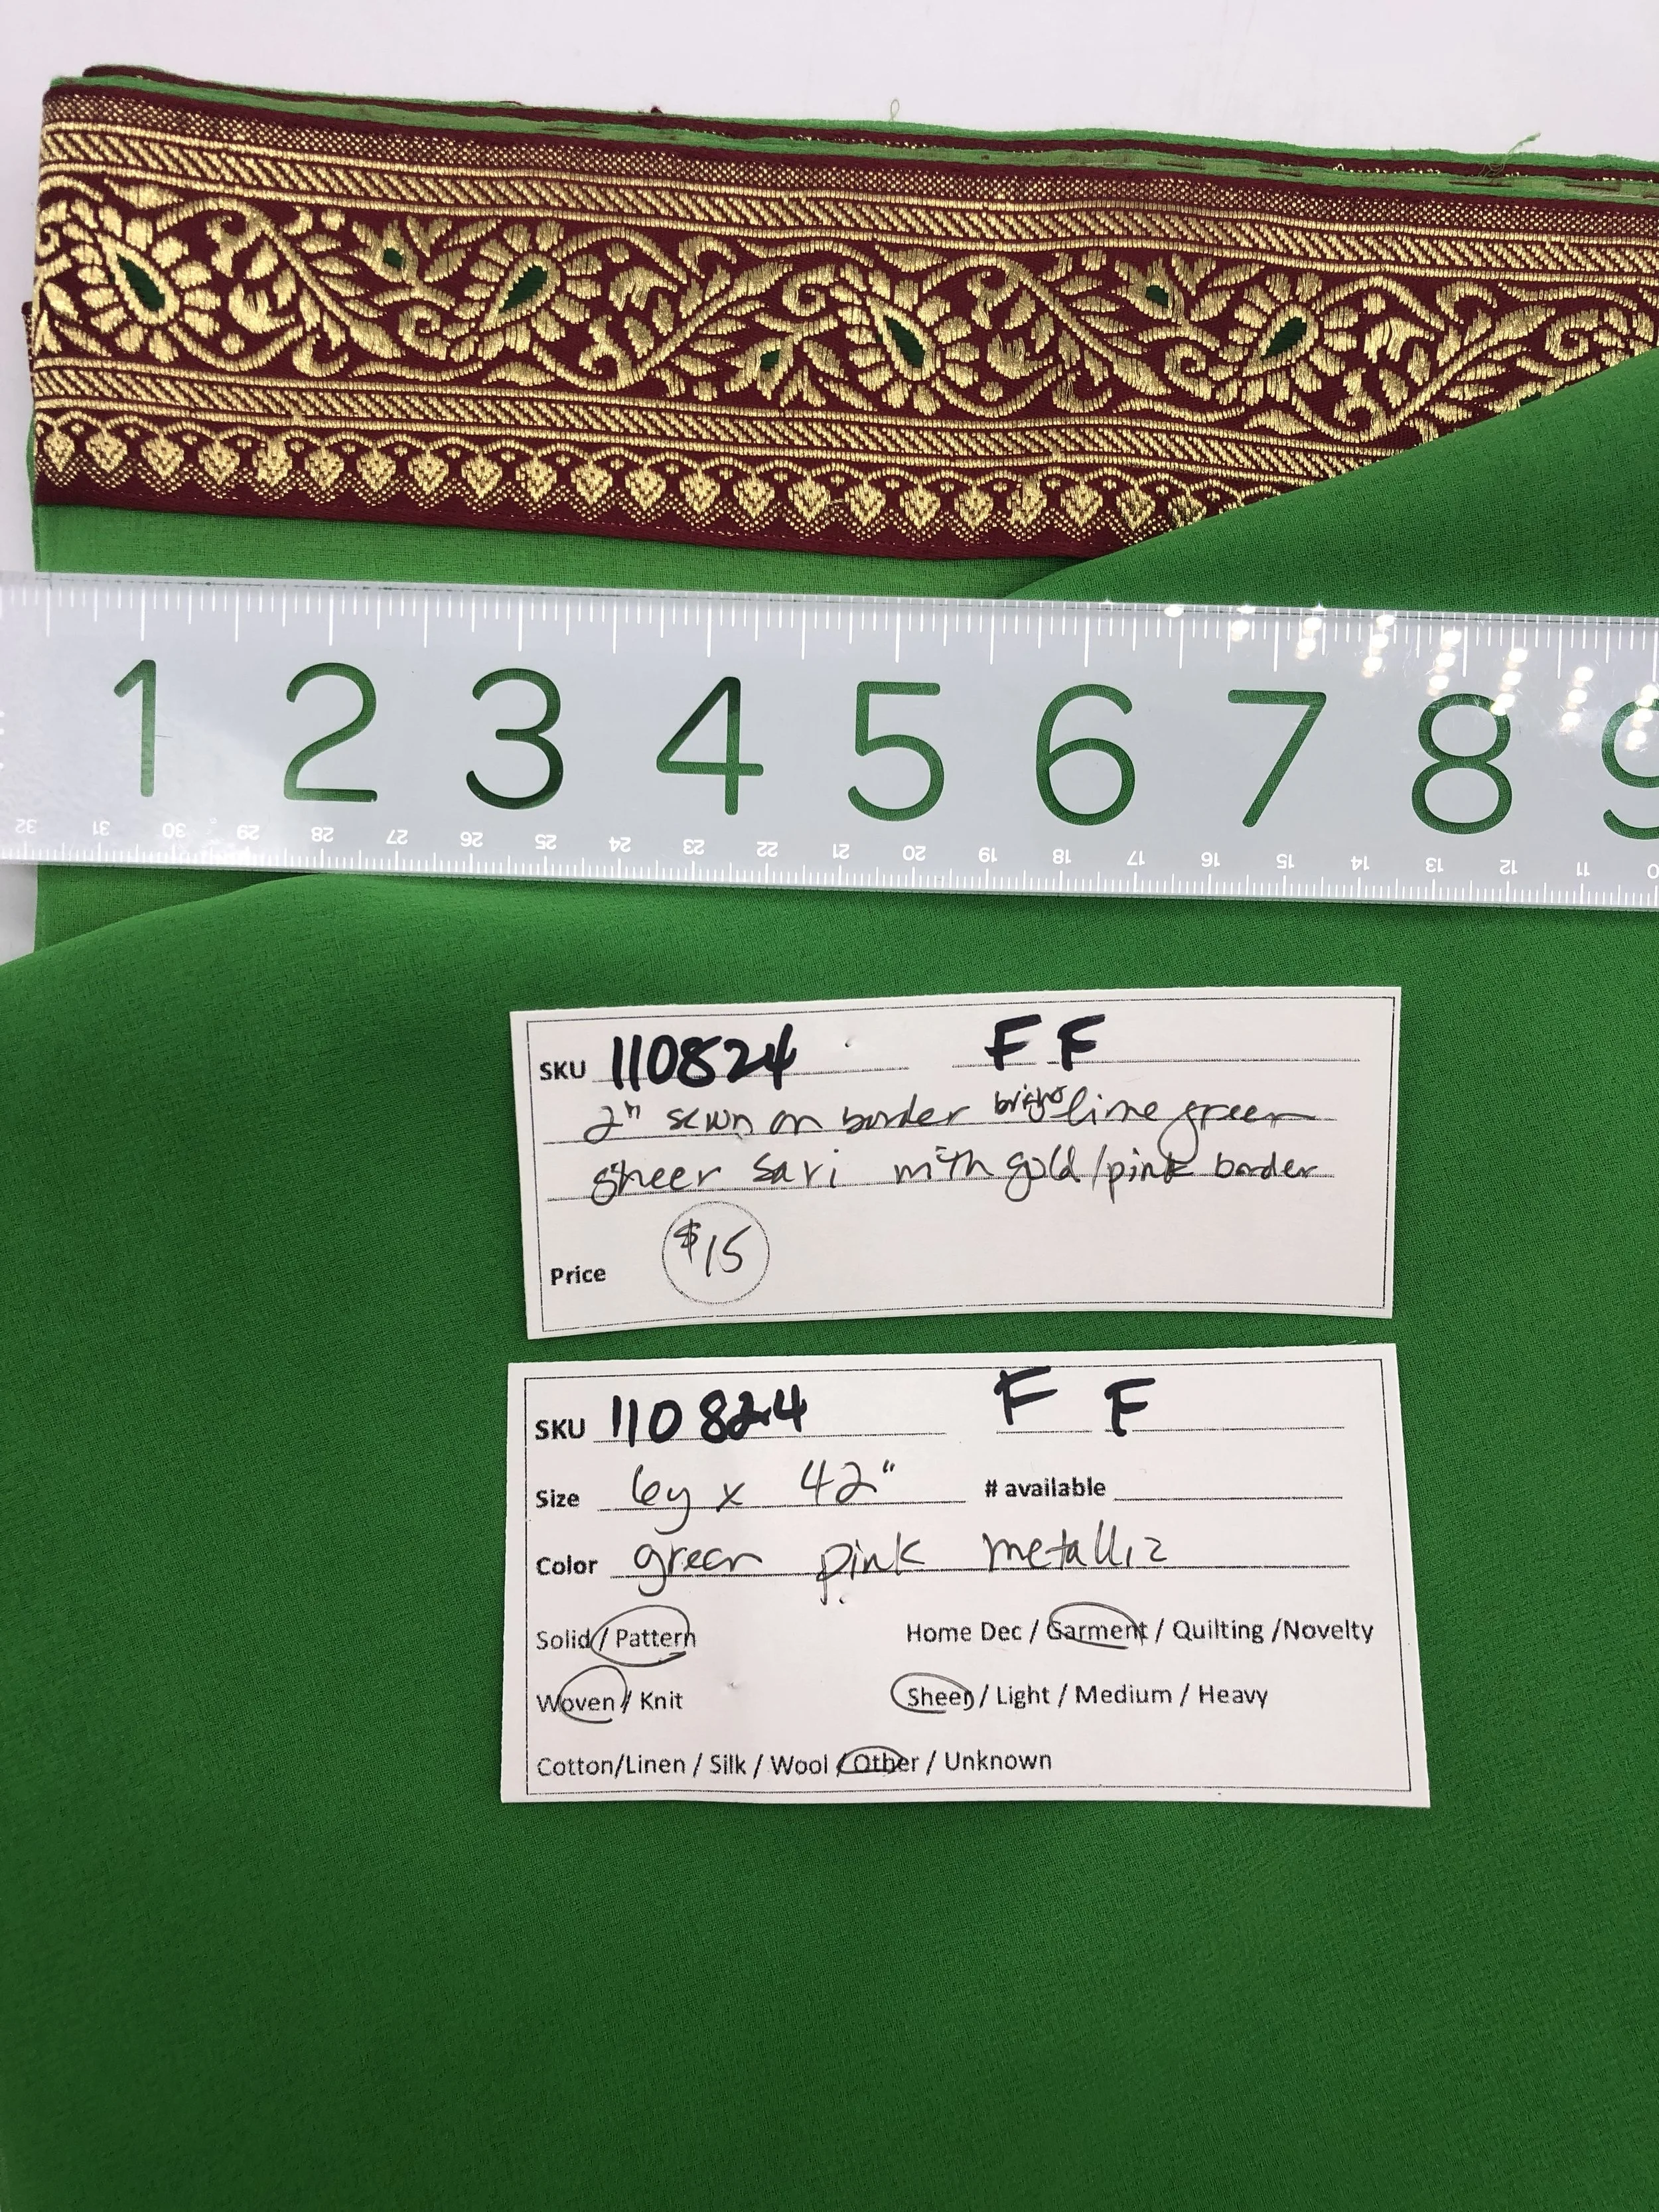 1 2 3 4 5 6 7 8 9
32 31 30 29 28 27 26 25 24 23 22 21 20 19 18 17 16 15 14 13 12 11 0
SKU 110824 F F
2" sewn on border bright lime green
sheer sari with gold/pink border
Price $15
SKU 110824 F F
Size 6y x 42" # available
Color green pink metallic
Solid / Pattern Home Dec / Garment / Quilting /Novelty
Woven / Knit Sheer / Light / Medium / Heavy
Cotton/Linen / Silk / Wool / Other / Unknown